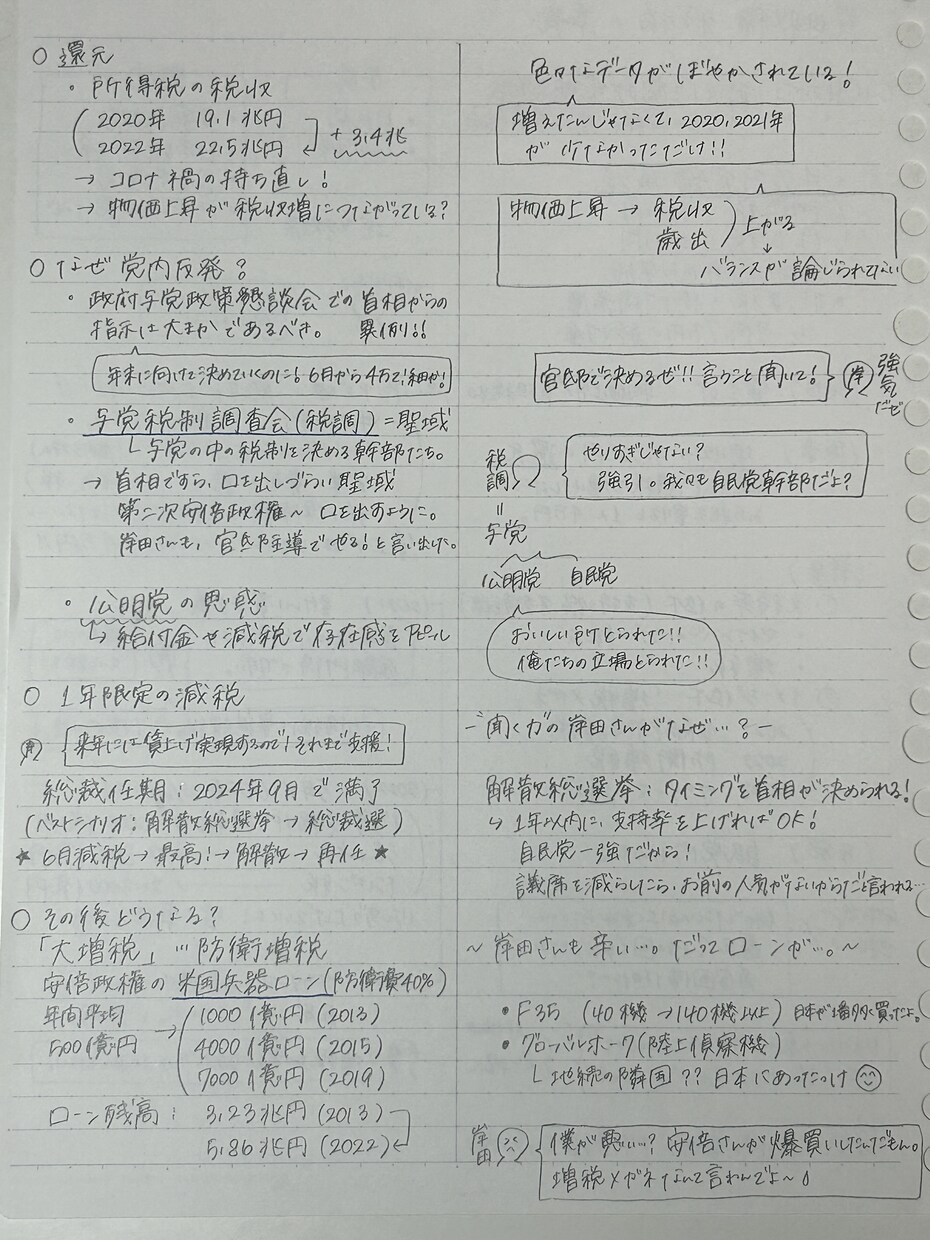 ○ 還元
・所得税の税収
2020年 19.1兆円
2022年 22.5兆円
+3.4兆
→ コロナ禍の持ち直し!
→ 物価上昇が税収増につながっている?
○ なぜ党内反発?
・政府与党政策懇談会での首相からの
指示は大まかであるべき。 異例!!
年末に向けて決めていくのに!6月から4万て!細か!
・与党税制調査会(税調)=聖域
└ 与党の中の税制を決める幹部たち。
→ 首相ですら、口を出しづらい聖域
第二次安倍政権〜 口を出すように。
岸田さんも、官邸主導でやる!と言い出した。
・公明党の思惑
↳ 給付金や減税で存在感をアピール
○ 1年限定の減税
岸
来年には賃上げ実現するので!それまで支援!
総裁任期:2024年9月で満了
(ベストシナリオ:解散総選挙 → 総裁選)
★ 6月減税→最高!→解散→再任 ★
○ その後どうなる?
「大増税」…防衛増税
安倍政権の米国兵器ローン(防衛費40%)
年間平均
500億円
→
1000億円(2013)
4000億円(2015)
7000億円(2019)
ローン残高: 3.23兆円(2013)
5.86兆円(2022)
色々なデータがぼやかされている!
増えたんじゃなくて、2020,2021年
が少なかっただけ!!
物価上昇 → 税収
歳出
上がる
↓
バランスが論じられてない
官邸で決めるぜ!!言うこと聞いて!
岸
強気だぜ
税調
やりすぎじゃない?
強引。我々も自民党幹部だよ?
=
与党
公明党 自民党
おいしいとことられた!!
俺たちの立場とられた!!
-"聞く力"の岸田さんがなぜ…?-
解散総選挙:タイミングを首相が決められる!
↳ 1年以内に、支持率を上げればOK!
自民党一強だから!
議席を減らしたら、お前の人気がないからだと言われる…
〜 岸田さんも辛い…。だってローンが…。〜
・F35 (40機→140機以上) 日本が1番多く買ってたよ。
・グローバルホーク(陸上偵察機)
└ 地続の隣国??日本にあったっけ
岸田
僕が悪い…?安倍さんが爆買いしたんだもん。
増税メガネなんて言わんでよ〜